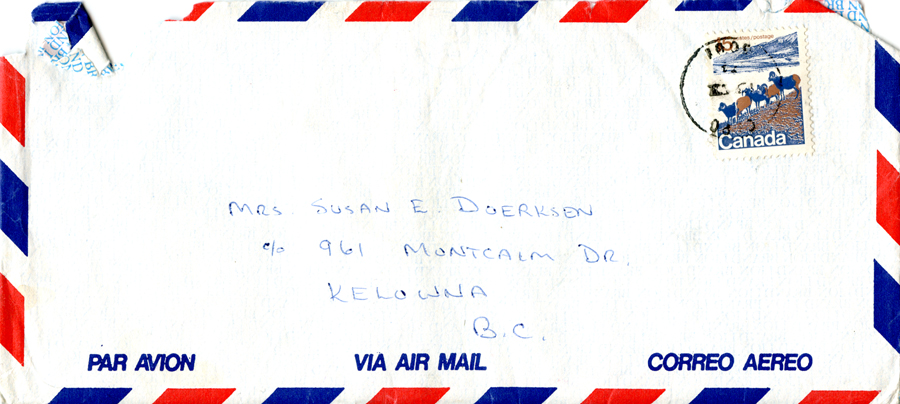 Canada
MRS. SUSAN E. DOERKSEN
c/o 961 MONTCALM DR.
KELOWNA
B.C.
PAR AVION VIA AIR MAIL CORREO AEREO